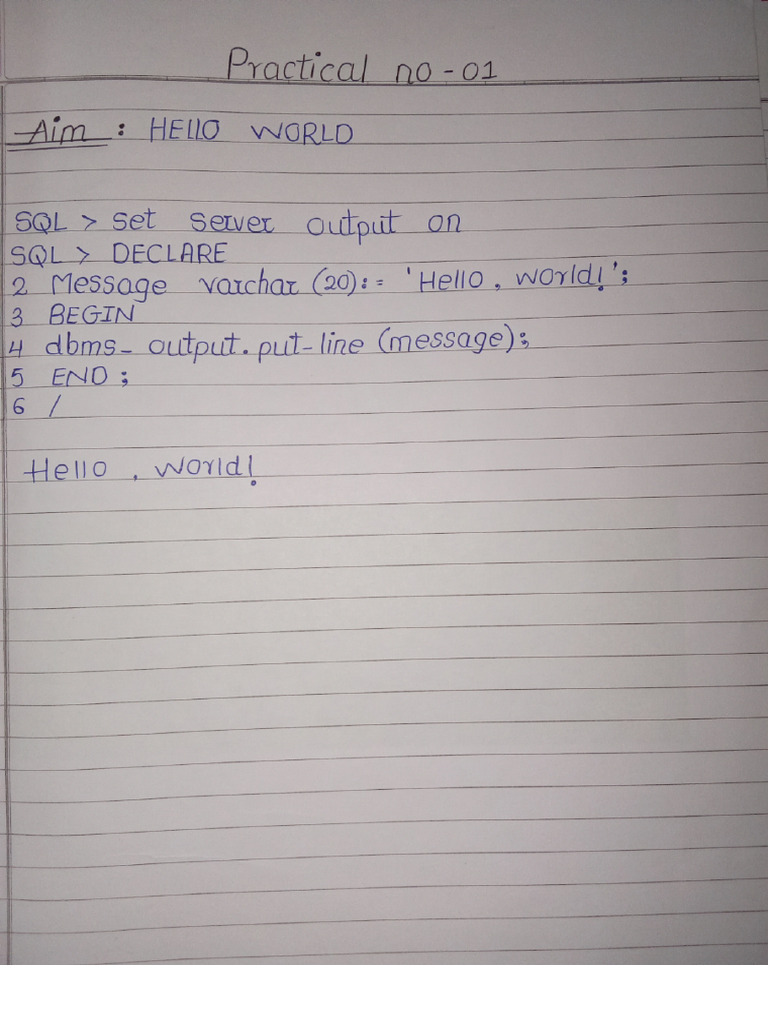 Practical no-01
Aim : HELLO WORLD
SQL > set server output on
SQL > DECLARE
2 Message varchar (20):= 'Hello, world!';
3 BEGIN
4 dbms_output.put-line (message);
5 END ;
6 /
Hello , world!